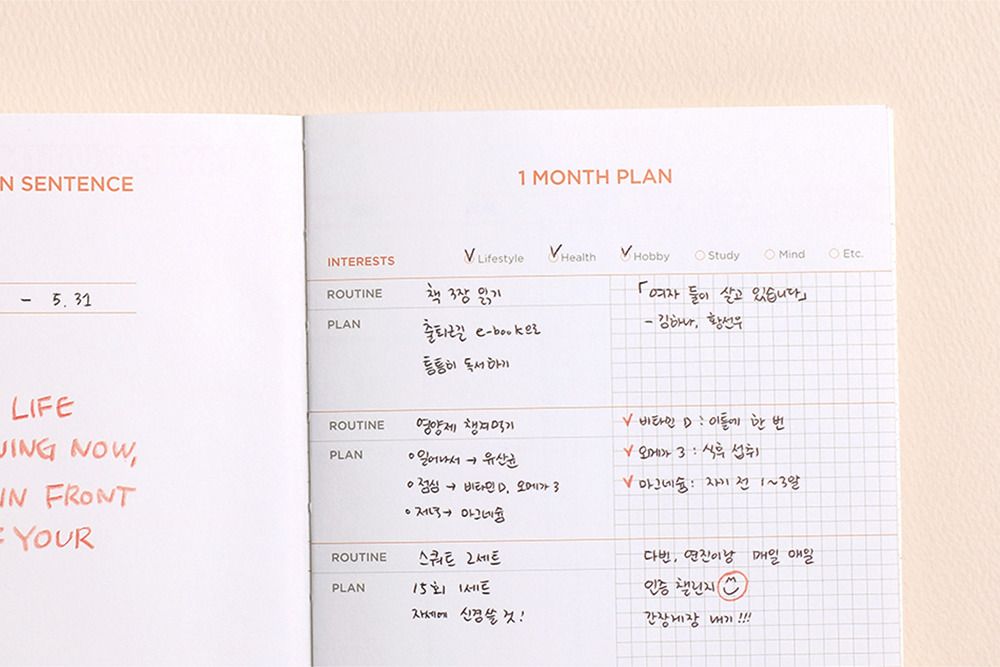 N SENTENCE
- 5. 31
LIFE
NOW,
IN FRONT
YOUR
1 MONTH PLAN
INTERESTS Lifestyle Health Hobby Study Mind Etc.
ROUTINE 책 3장 읽기
「여자 둘이 살고 있습니다」
- 김하나, 황선우
PLAN 출퇴근길 e-book으로
틈틈히 독서하기
ROUTINE 영양제 챙겨먹기
PLAN 일어나서 → 유산균
점심 → 비타민D, 오메가 3
저녁 → 마그네슘
비타민 D : 이틀에 한 번
오메가 3 : 식후 섭취
마그네슘 : 자기 전 1~3알
ROUTINE 스쿼트 2세트
PLAN 15회 1세트
자세에 신경쓸 것!
다빈, 연진이랑 매일 매일
인증 챌린지
간장게장 내기!!!